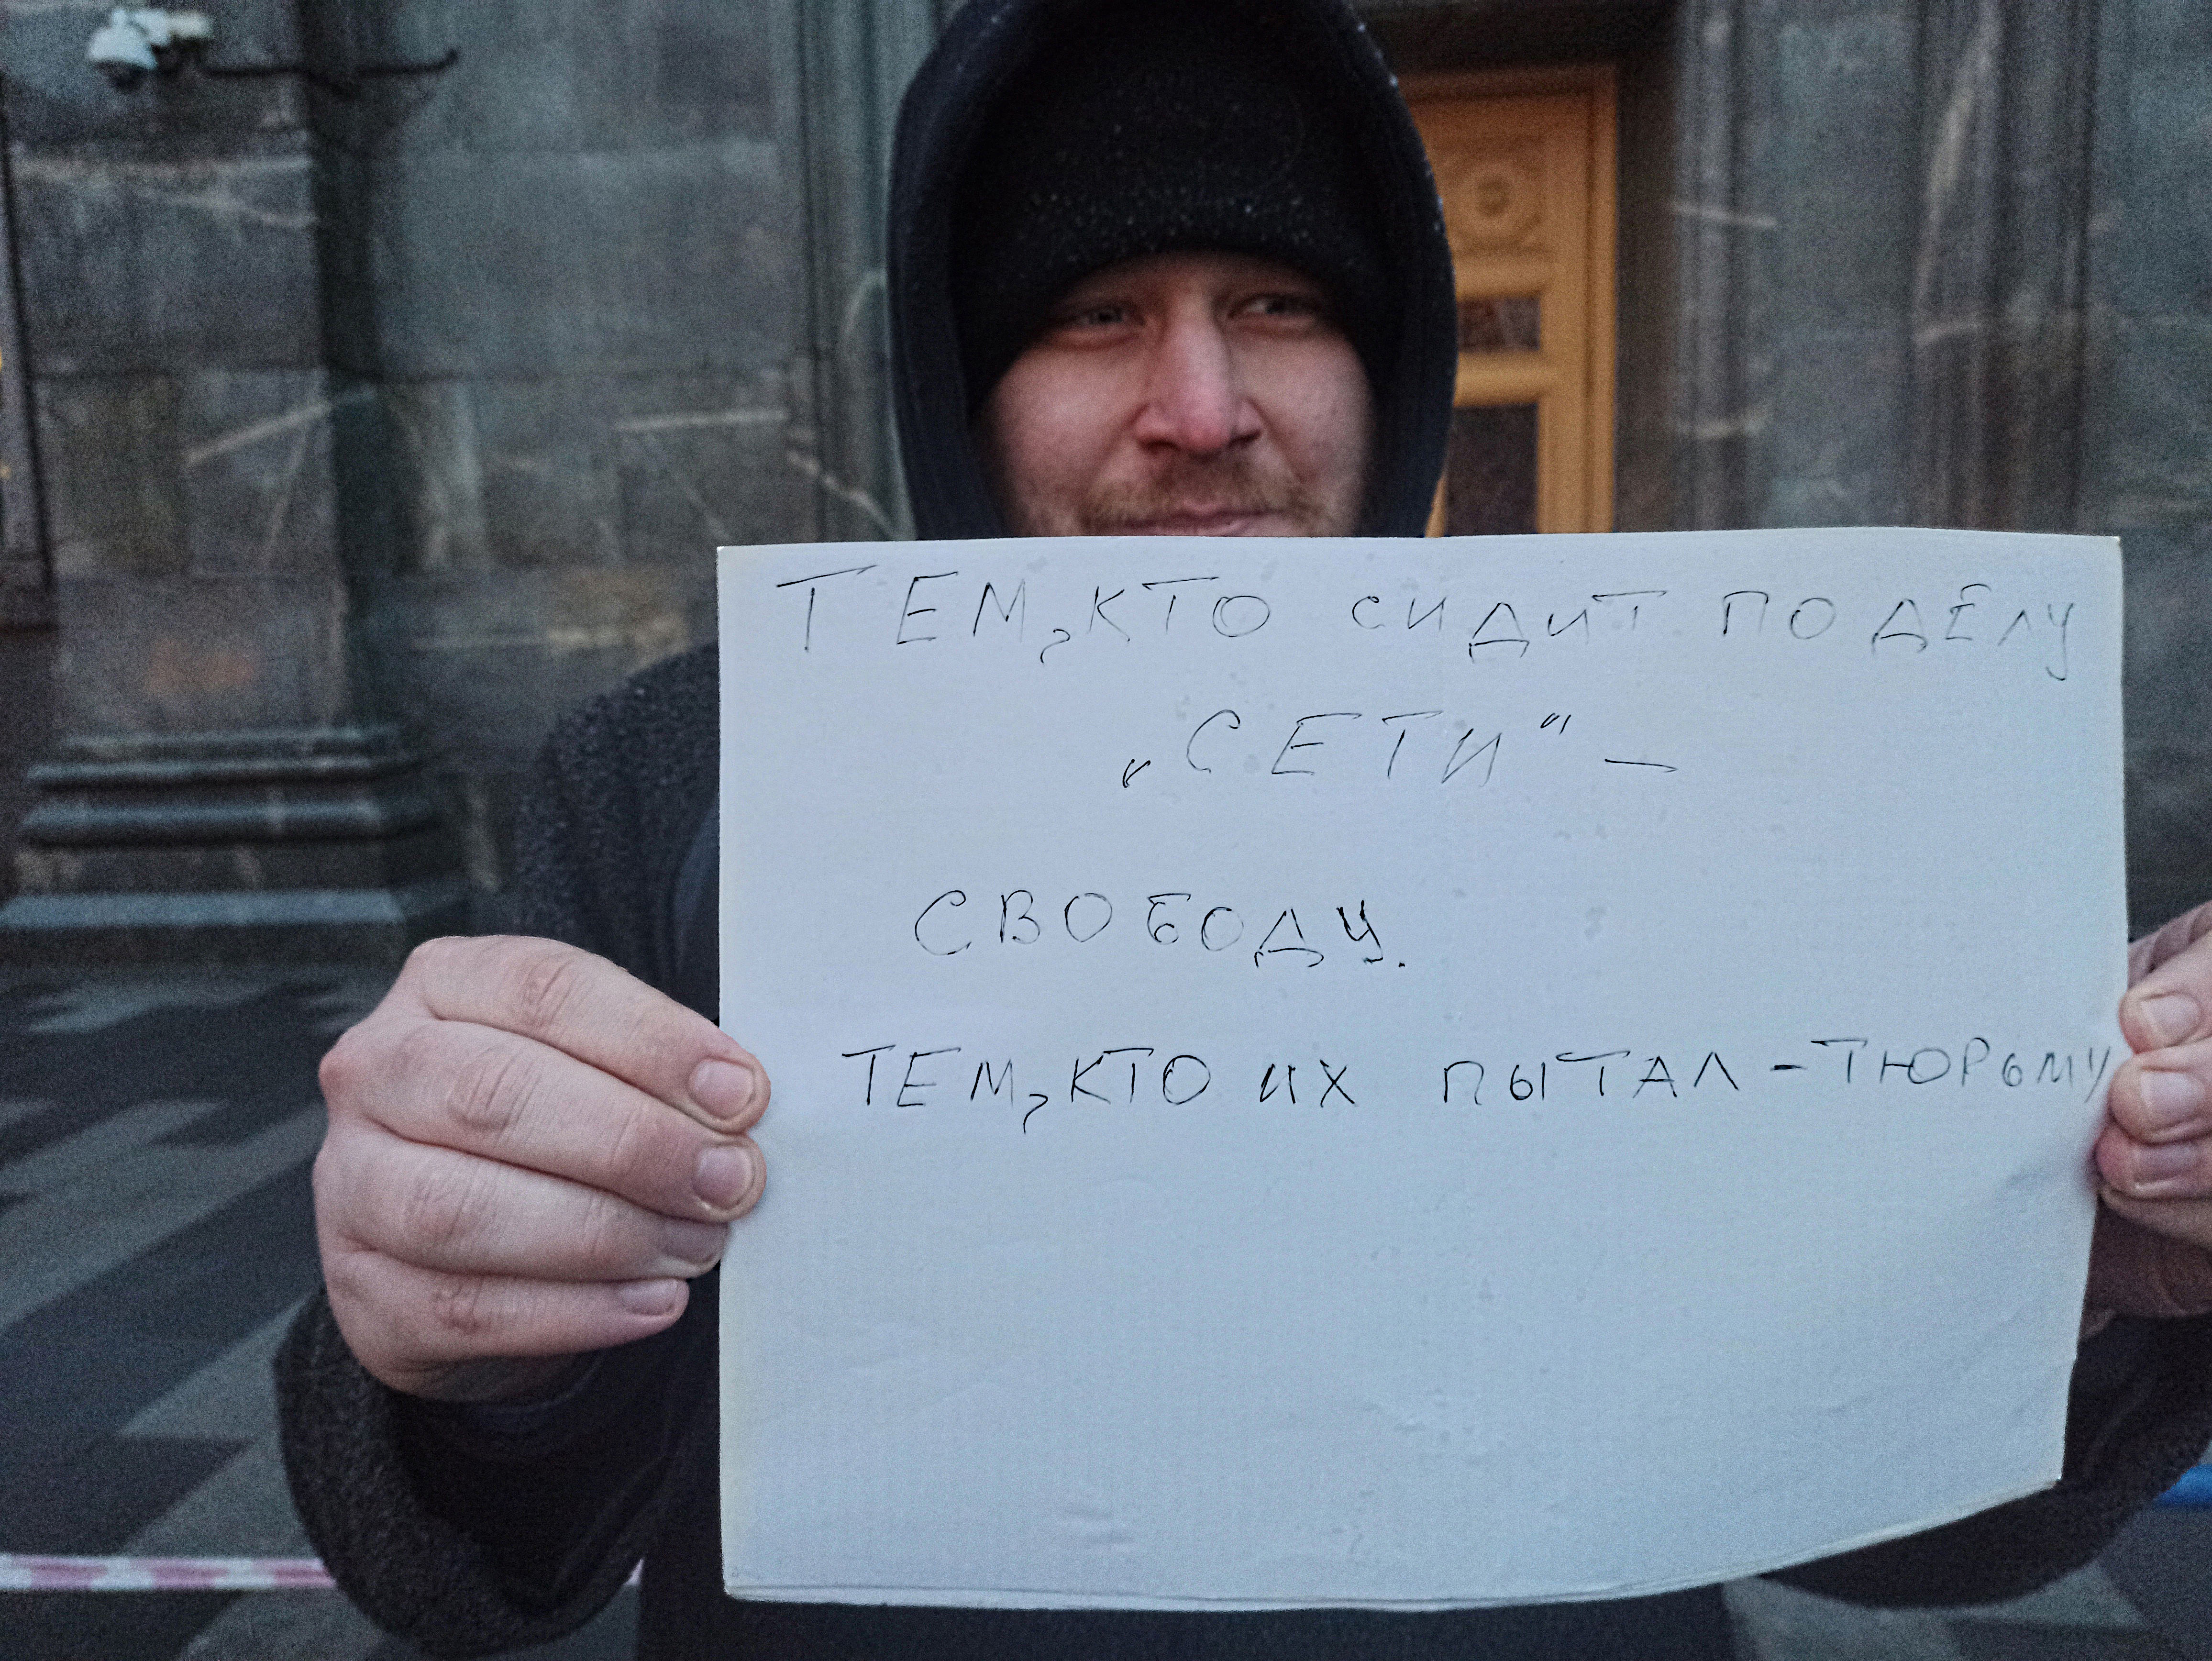 ТЕМ, КТО СИДИТ ПО ДЕЛУ
„СЕТИ“ –
СВОБОДУ.
ТЕМ, КТО ИХ ПЫТАЛ – ТЮРЬМУ